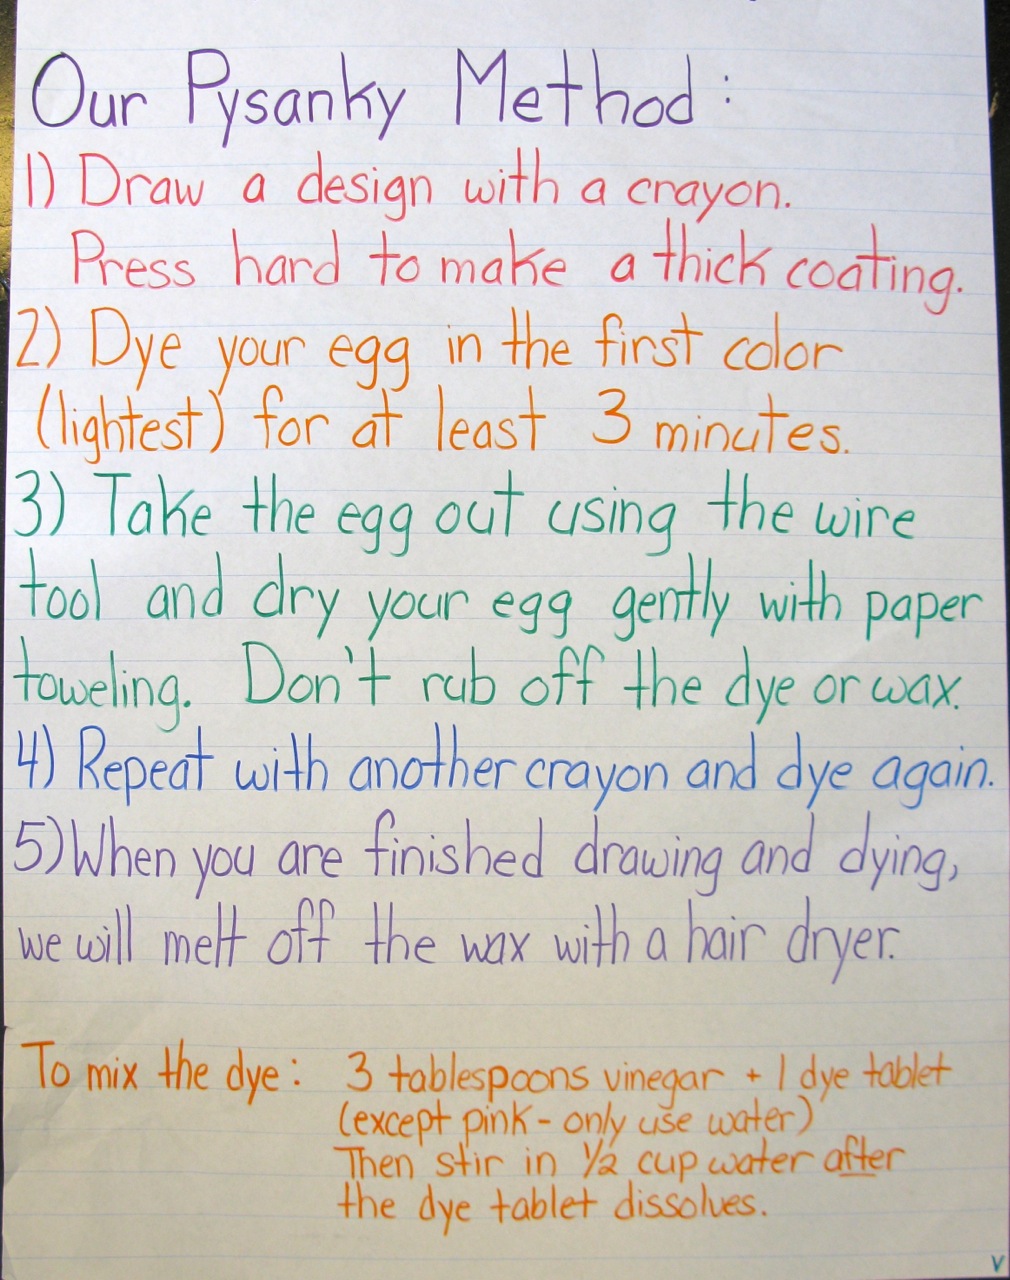 Our Pysanky Method:
1) Draw a design with a crayon.
Press hard to make a thick coating.
2) Dye your egg in the first color
(lightest) for at least 3 minutes.
3) Take the egg out using the wire
tool and dry your egg gently with paper
toweling. Don't rub off the dye or wax.
4) Repeat with another crayon and dye again.
5) When you are finished drawing and dying,
we will melt off the wax with a hair dryer.
To mix the dye: 3 tablespoons vinegar + 1 dye tablet
(except pink - only use water)
Then stir in 1/2 cup water after
the dye tablet dissolves.
V